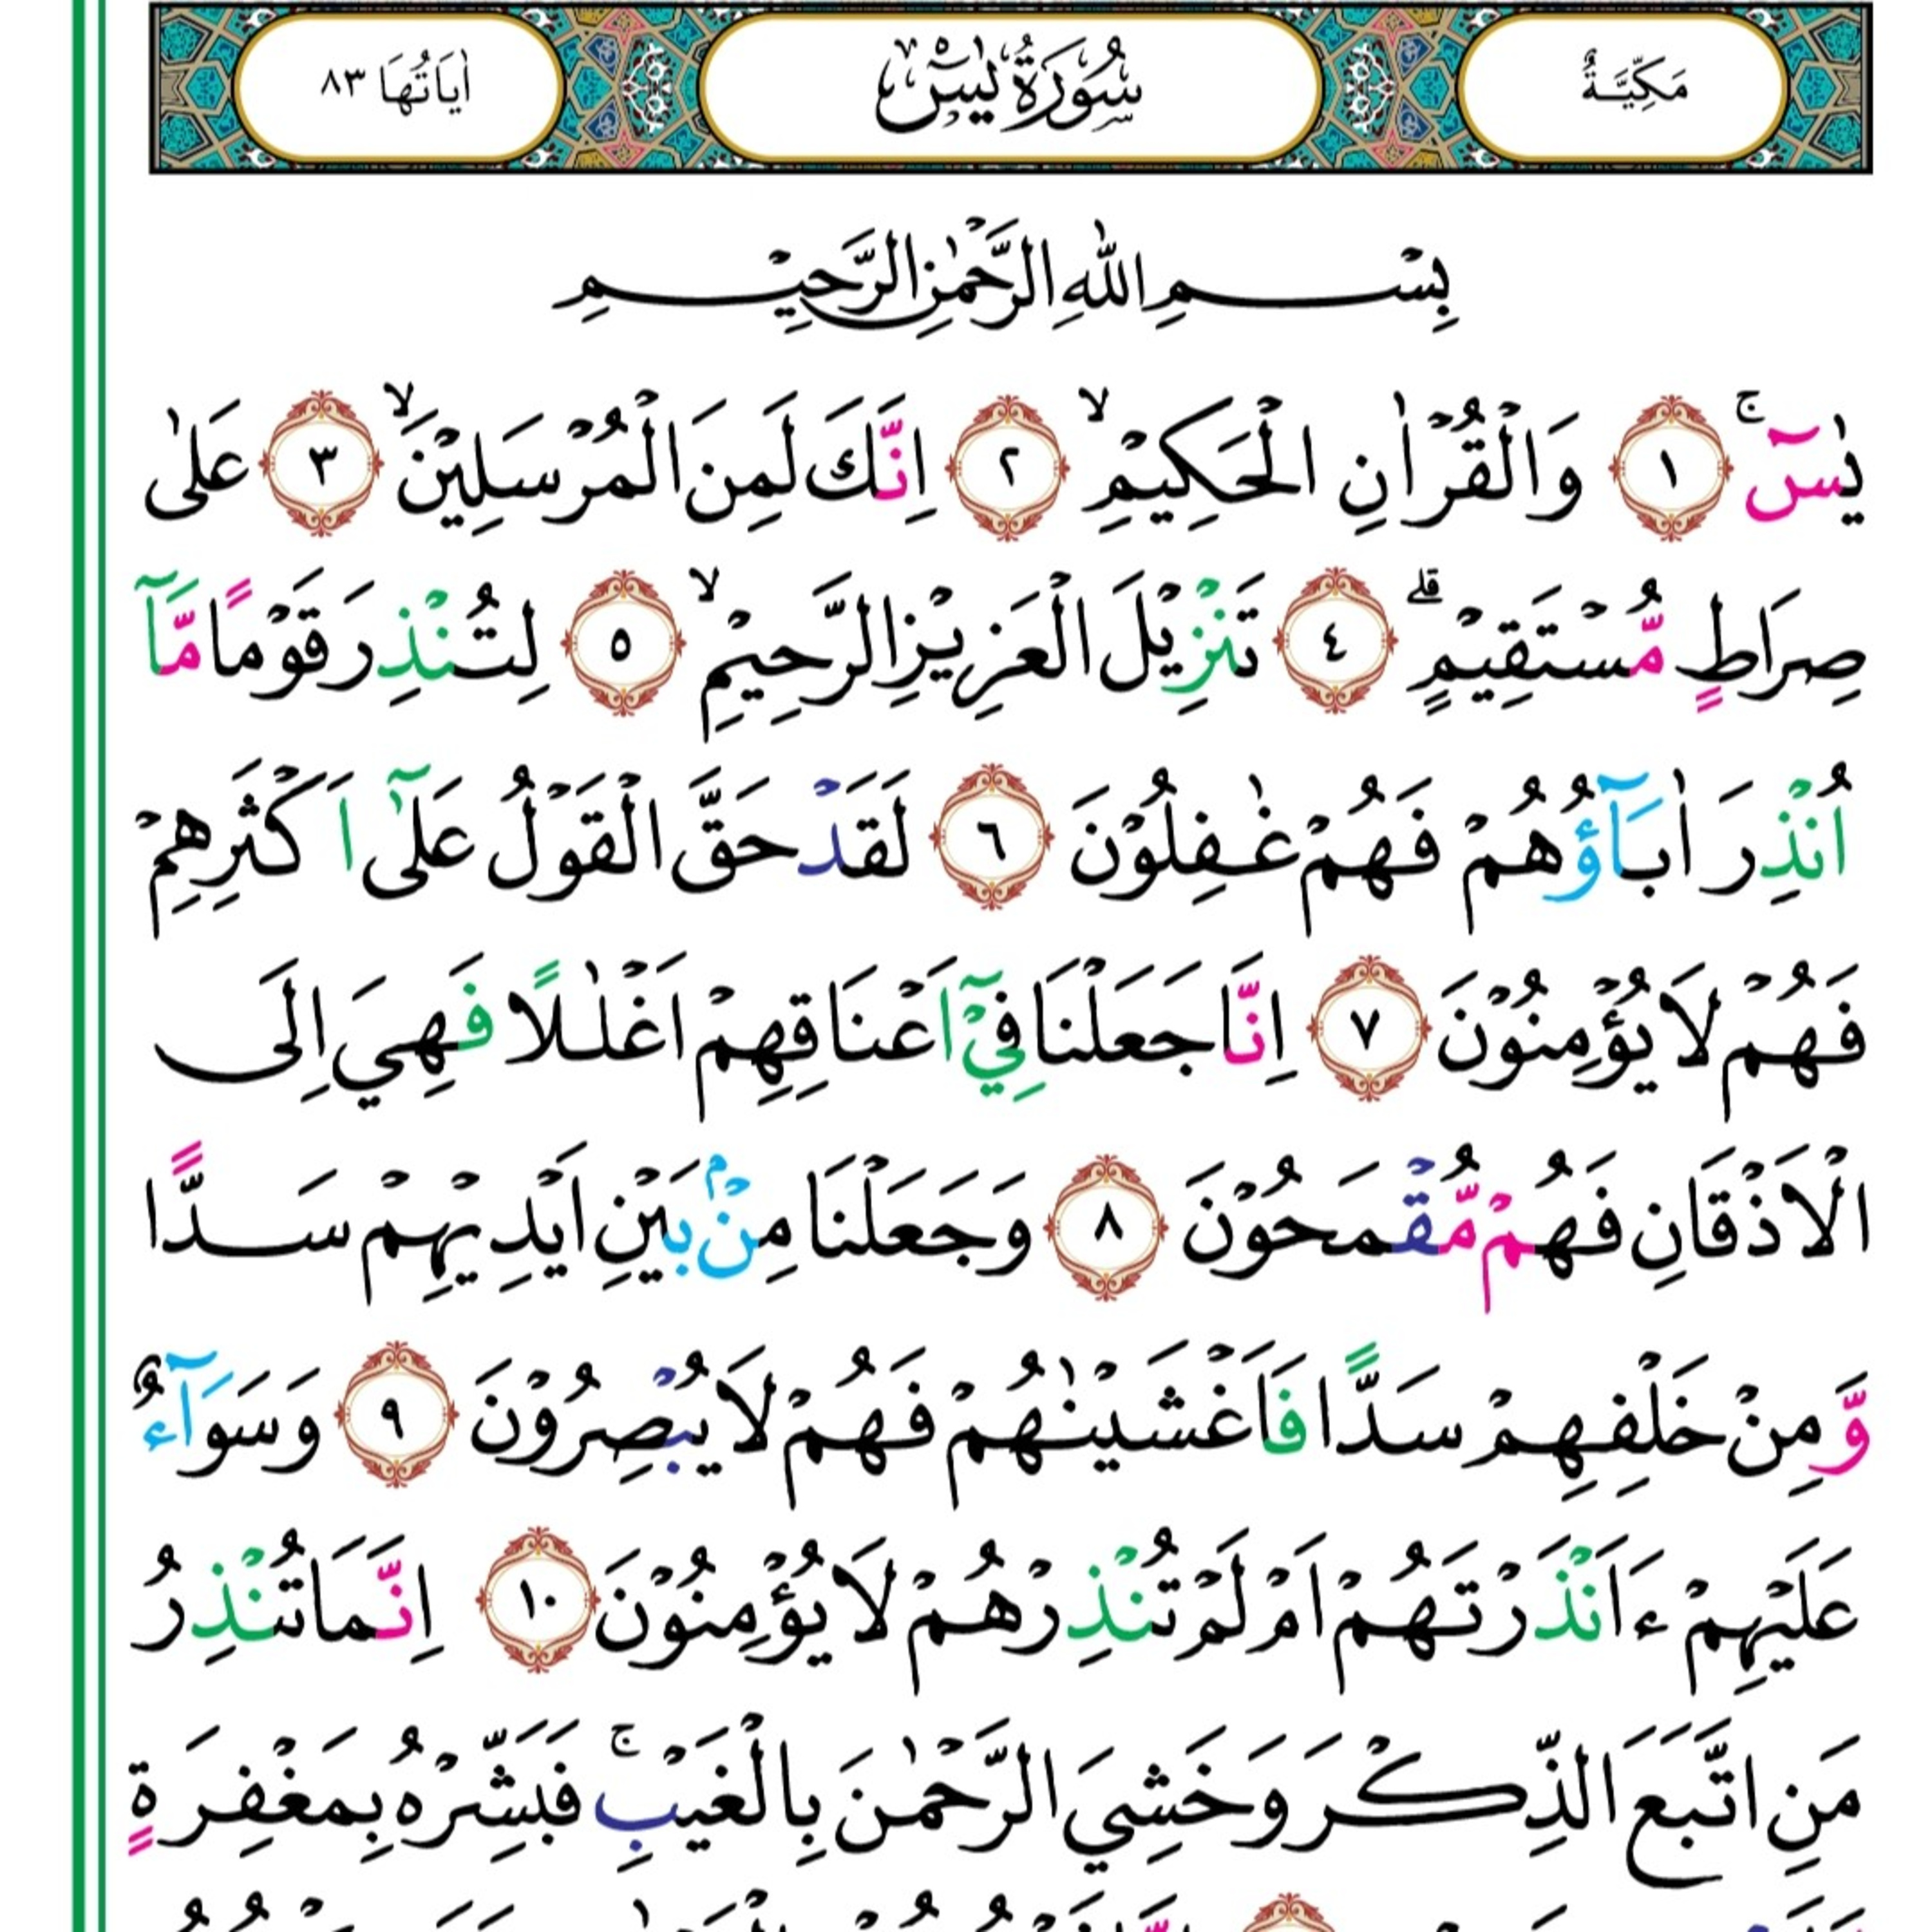 مَكِّيَّةٌ سُوْرَةُ يٰسٓ اٰيَاتُهَا ٨٣
بِسْمِ اللّٰهِ الرَّحْمٰنِ الرَّحِيْمِ
يٰسٓ ۚ ١ وَالْقُرْاٰنِ الْحَكِيْمِ ۙ ٢ اِنَّكَ لَمِنَ الْمُرْسَلِيْنَ ۙ ٣ عَلٰى
صِرَاطٍ مُّسْتَقِيْمٍ ۗ ٤ تَنْزِيْلَ الْعَزِيْزِ الرَّحِيْمِ ۙ ٥ لِتُنْذِرَ قَوْمًا مَّآ
اُنْذِرَ اٰبَآؤُهُمْ فَهُمْ غٰفِلُوْنَ ٦ لَقَدْ حَقَّ الْقَوْلُ عَلٰٓى اَكْثَرِهِمْ
فَهُمْ لَا يُؤْمِنُوْنَ ٧ اِنَّا جَعَلْنَا فِيْٓ اَعْنَاقِهِمْ اَغْلٰلًا فَهِيَ اِلَى
الْاَذْقَانِ فَهُمْ مُّقْمَحُوْنَ ٨ وَجَعَلْنَا مِنْۢ بَيْنِ اَيْدِيْهِمْ سَدًّا
وَّمِنْ خَلْفِهِمْ سَدًّا فَاَغْشَيْنٰهُمْ فَهُمْ لَا يُبْصِرُوْنَ ٩ وَسَوَآءٌ
عَلَيْهِمْ ءَاَنْذَرْتَهُمْ اَمْ لَمْ تُنْذِرْهُمْ لَا يُؤْمِنُوْنَ ١٠ اِنَّمَا تُنْذِرُ
مَنِ اتَّبَعَ الذِّكْرَ وَخَشِيَ الرَّحْمٰنَ بِالْغَيْبِ ۚ فَبَشِّرْهُ بِمَغْفِرَةٍ